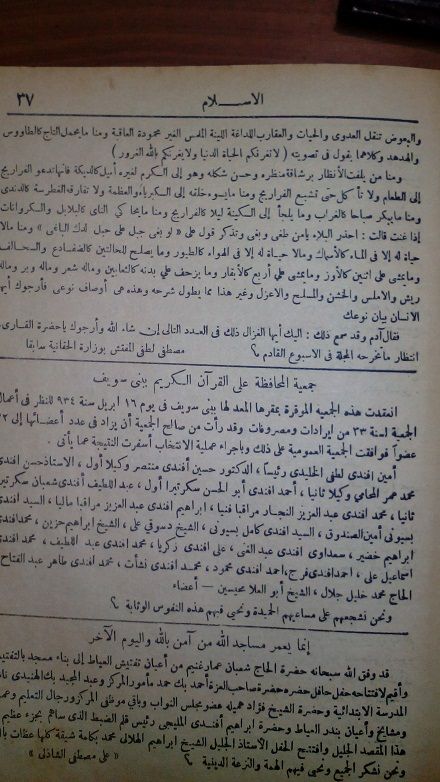 الاســـلام
٣٧
والبعوض تنقل العدوى والحيات والعقارب اللداغة اللينة الملمس الغير محمودة العاقبة ومنا مايحمل التاج كالطاووس
والهدهد وكلاهما يقول فى تصويته ( لا تغرنكم الحياة الدنيا ولا يغرنكم بالله الغرور )
ومنا من يلفت الأنظار برشاقة منظره وحسن شكله وهو إلى الكرم لغيره أميل كالديكة فانها تدعو الفراريج
إلى الطعام ولا تأكل حتى تشبع الفراريج ومنا مايسوءه خلقه إلى الكبرياء والعظمة ولا تفارقه الغطرسة كالدندى
ومنا مايبكر صباحا كالغراب وما يلجأ إلى السكينة ليلا كالفراريج ومنا مايحاكى الناى كالبلابل والكروانات
إذا غنت قالت : احذر البلاء يامن طغى وبغى وتذكر قول على « لو بغى جبل على جبل لدك الباغى » ومنا مالا
حياة له إلا فى الماء كالأسماك ومالا حياة له إلا فى الهواء كالطيور وما يصلح للحالتين كالضفادع والسحالف
ومايمشى على اثنين كالأوز ومايمشى على أربع كالأبقار وما يزحف على بدنه كالثعابين وماله شعر وماله وبر وماله
ريش والاملس والخشن والمسلح والاعزل وغير هذا مما يطول شرحه وهذه هى أوصاف نوعى فأرجوك أيها
الانسان بيان نوعك
فقال آدم وقد سمع ذلك : اليك أيها الغزال ذلك فى العدد التالى إن شاء الله وأرجوك ياحضرة القارىء
انتظار ماتخرجه المجلة فى الاسبوع القادم ؟ مصطفى لطفى المفتش بوزارة الحقانية سابقا
جمعية المحافظة على القرآن الكريم ببنى سويف
انعقدت هذه الجمعية الموقرة بمقرها المعد لها ببنى سويف فى يوم ١٦ ابريل سنة ٩٣٤ للنظر فى أعمال
الجمعية لسنة ٣٣ من إيرادات ومصروفات وقد رأت من صالح الجمعية أن يزاد فى عدد أعضائها إلى ٢٢
عضواً فوافقت الجمعية العمومية على ذلك وباجراء عملية الانتخاب أسفرت النتيجة عما يأتى .
أمين افندى لطفى الخليدى رئيساً ، الدكتور حسين أفندى منتصر وكيلا أول ، الاستاذ حسن افندى
محمد عمر المحامى وكيلا ثانيا ، أحمد افندى أبو الحسن سكرتيرا أول ، عبد اللطيف أفندى شعبان سكرتيرا
ثانيا ، محمد افندى عبد العزيز النجار مراقبا فنيا ، ابراهيم افندى عبد العزيز مراقبا ماليا ، السيد افندى
بسيونى أمين الصندوق ، السيد افندى كامل بسيونى ، الشيخ دسوقى على ، الشيخ ابراهيم حزين ، محمد افندى
ابراهيم خضير ، سعداوى افندى عبد الغنى ، على افندى زكريا ، محمد افندى عبد اللطيف ، محمد افندى
اسماعيل على ، احمد افندى فرج ، احمد افندى محمود ، محمد افندى نشأت ، محمد افندى طاهر عبد الفتاح
الحاج محمد خليل جلال ، الشيخ أبو العلا محيسين — أعضاء
ونحن نشجعهم على مساعيهم الحميدة ونحيى فيهم هذه النفوس الوثابة ؟
إنما يعمر مساجد الله من آمن بالله واليوم الآخر
قد وفق الله سبحانه حضرة الحاج شعبان عمار غنيم من أعيان تفتيش العياط إلى بناء مسجد بالتفتيش
وأقيم لافتتاحه حفل حافل حضره حضرة صاحب العزة أحمد بك حمد مأمور المركز وعبد المجيد بك الهنيدى ناظر
المدرسة الابتدائية وحضرة الشيخ فؤاد هميله عضو مجلس النواب وباقى موظفى المركز ورجال التعليم وعمد
ومشايخ وأعيان بندر العياط وحضرة ابراهيم أفندى المليجى رئيس قلم الضبط الذى ساهم بجزء عظيم
هذا المقصد الجليل وافتتح الحفل الأستاذ الجليل الشيخ ابراهيم الهلالى محمد بكلمة شيقة كلها عظات
ونحن نشكر الجميع ونحيى فيهم الهمة والنزعة الدينية ؟ « على مصطفى الشاذلى »